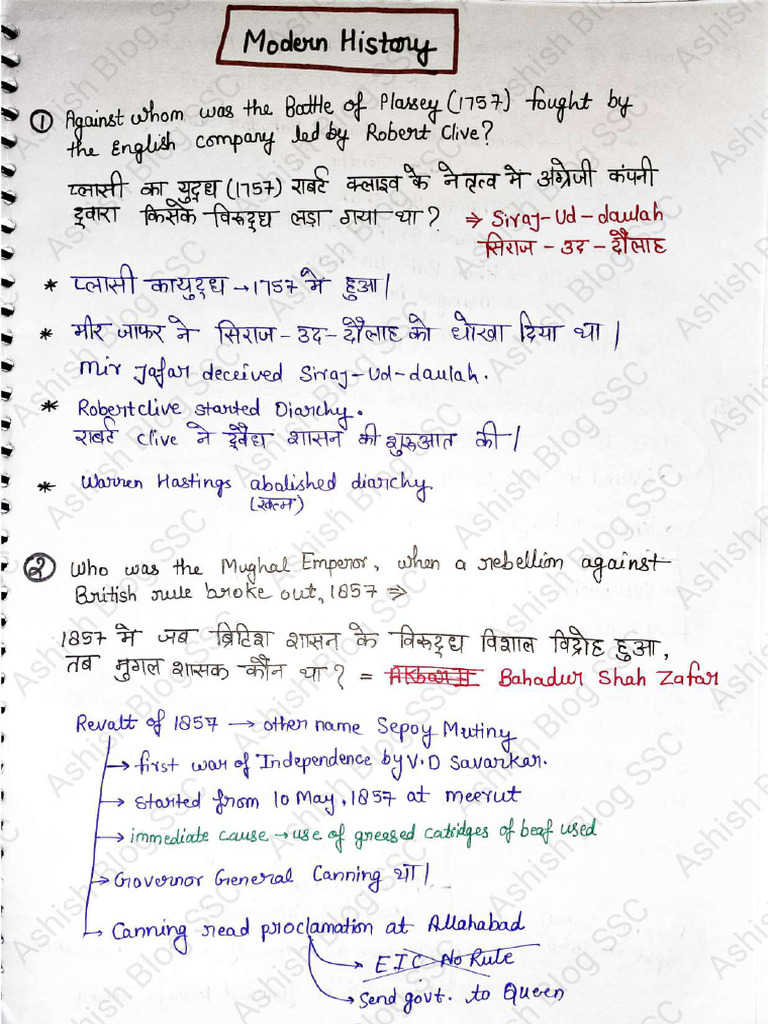 Modern History
① Against whom was the Battle of Plassey (1757) fought by
the English company led by Robert Clive?
प्लासी का युद्ध (1757) राबर्ट क्लाइव के नेतृत्व में अंग्रेजी कंपनी
द्वारा किसके विरूद्ध लड़ा गया था? ⇒ Siraj-Ud-daulah
सिराज - उद - दौलाह
* प्लासी का युद्ध → 1757 मे हुआ।
* मीर जाफर ने सिराज - उद - दौलाह को धोखा दिया था।
Mir Jafar deceived Siraj-Ud-daulah.
* Robert clive started Diarchy.
राबर्ट Clive ने द्वैध शासन की शुरुआत की।
* Warren Hastings abolished diarchy.
(खत्म)
② Who was the Mughal Emperor, when a rebellion against
British rule broke out, 1857 ⇒
1857 मे जब ब्रिटिश शासन के विरूद्ध विशाल विद्रोह हुआ,
तब मुगल शासक कौन था? = Akbar II Bahadur Shah Zafar
Revalt of 1857 → other name Sepoy Mutiny
→ first war of Independence by V.D Savarkar.
→ Started from 10 May, 1857 at meerut
→ immediate cause → use of greased catridges of beaf used
→ Governor General Canning था।
→ Canning read proclamation at Allahabad
→ EIC No Rule
→ Send govt. to Queen
Ashish Blog SSC